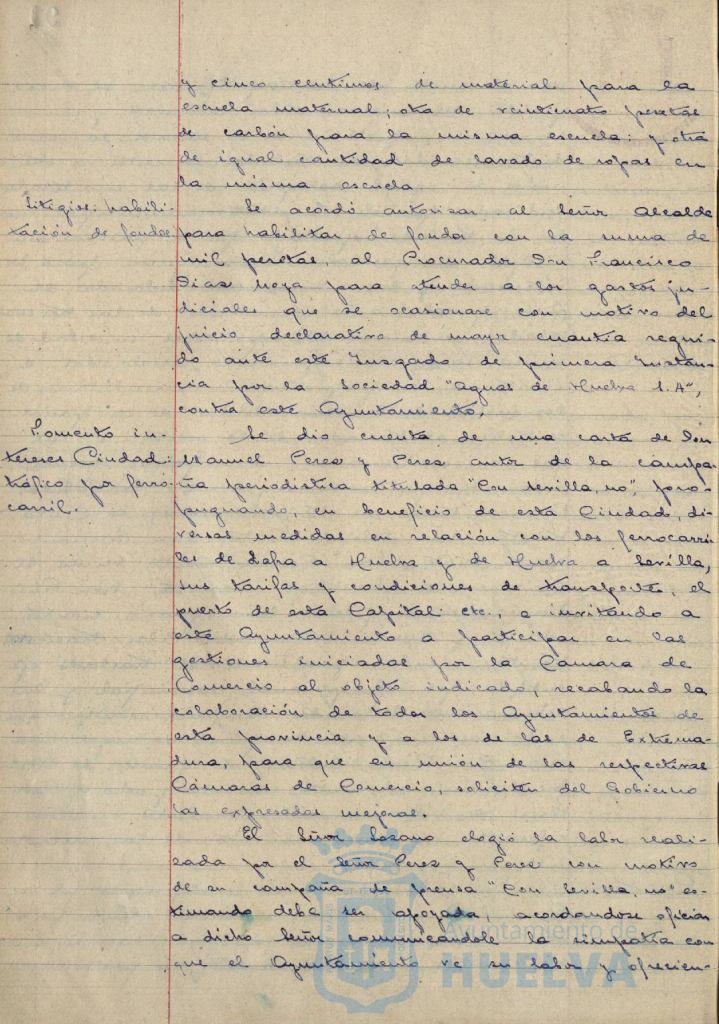 y cinco centimos de material para la
escuela maternal; otra de veinticuatro pesetas
de carbón para la misma escuela; y otra
de igual cantidad de lavado de ropas en
la misma escuela
Litigios: habili-
tación de fondos
Se acordó autorizar al Señor Alcalde
para habilitar de fondos con la suma de
mil pesetas, al Procurador Don Francisco
Diaz Moya para atender a los gastos ju-
diciales que se ocasionase con motivo del
juicio declarativo de mayor cuantía segui-
do ante este Juzgado de primera Instan-
cia por la Sociedad "Aguas de Huelva S.A",
contra este Ayuntamiento.
Fomento in-
tereses Ciudad:
tráfico por ferro-
carril.
Se dio cuenta de una carta de Don
Manuel Perez y Perez autor de la campa-
ña periodistica titulada "Con Sevilla, no", pro-
pugnando, en beneficio de esta Ciudad, di-
versas medidas en relación con los ferrocarri-
les de Zafra a Huelva y de Huelva a Sevilla,
sus tarifas y condiciones de transportes, el
puerto de esta Capital etc., e invitando a
este Ayuntamiento a participar en las
gestiones iniciadas por la Cámara de
Comercio al objeto indicado, recabando la
colaboración de todos los Ayuntamientos de
esta provincia y a los de las de Extrema-
dura, para que en unión de las respectivas
Cámaras de Comercio, soliciten del Gobierno
las expresadas mejoras.
El Señor Lozano elogió la labor reali-
zada por el Señor Perez y Perez con motivo
de su campaña de prensa "Con Sevilla, no" es-
timando debe ser apoyada, acordandose oficiar
a dicho Señor comunicandole la simpatía con
que el Ayuntamiento ve su labor y ofrecien-
Ayuntamiento de
HUELVA